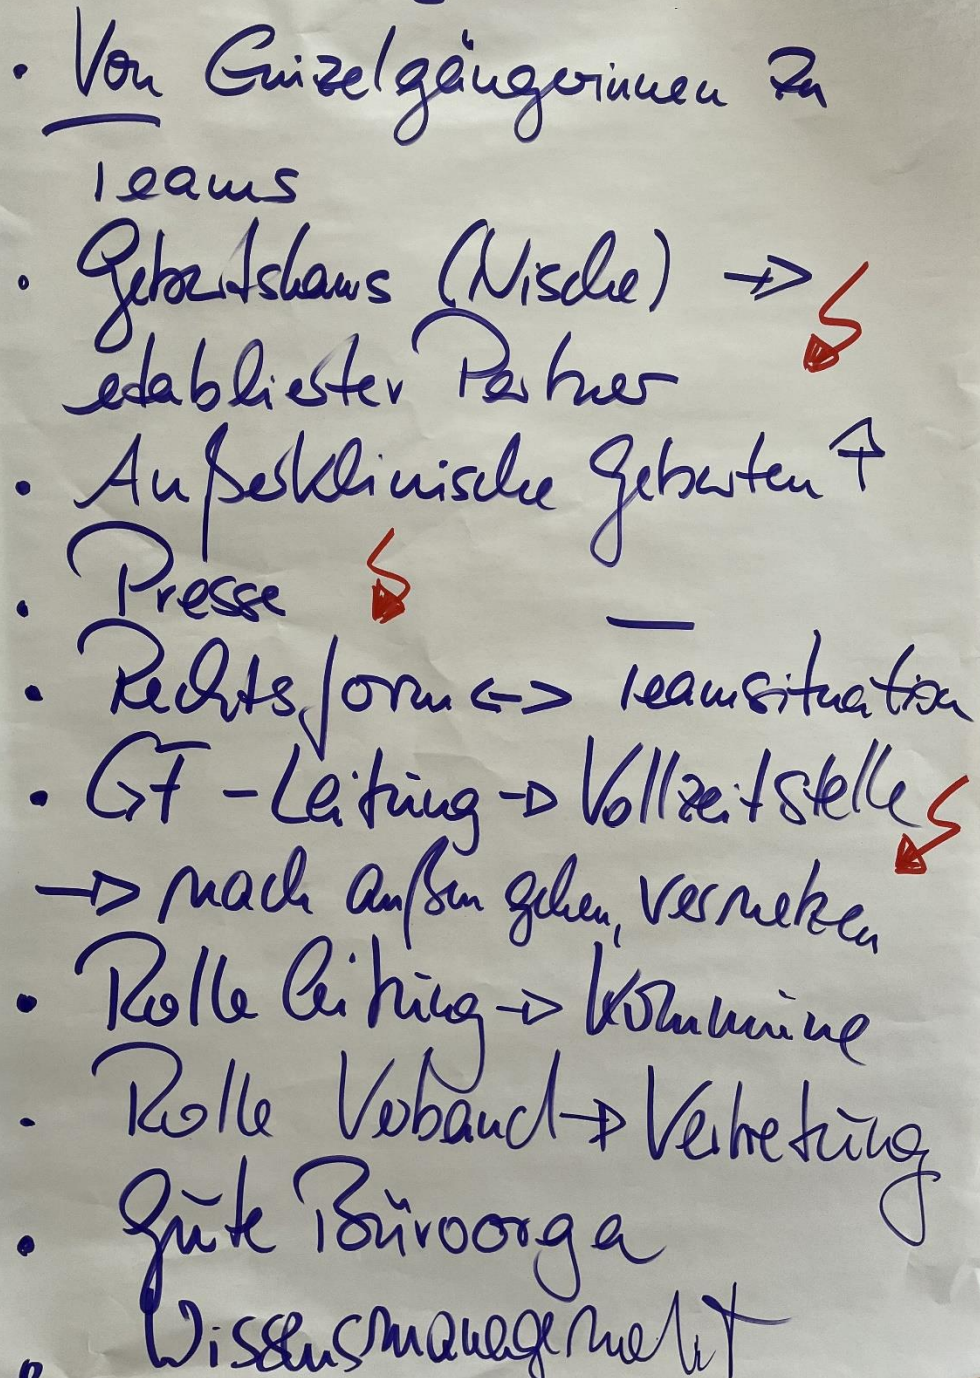 • Von Einzelgängerinnen zu
Teams
• Geburtshaus (Nische) →
etablierter Partner
• Außerklinische Geburten ↑
• Presse
• Rechtsform <-> Teamsituation
• GF-Leitung → Vollzeitstelle
→ nach außen gehen, vernetzen
• Rolle Leitung → Kommune
• Rolle Verband → Vertretung
• Gute Büroorga
• Wissensmanagement